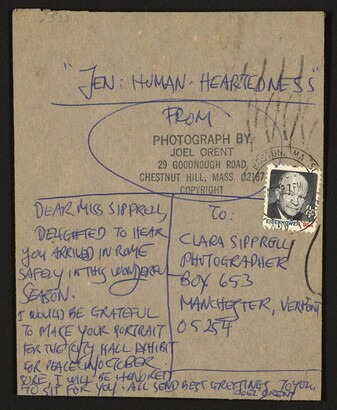 "JEN: HUMAN-HEARTEDNESS"
FROM
PHOTOGRAPH BY
JOEL ORENT
29 GOODNOUGH ROAD
CHESTNUT HILL, MASS. 02167
COPYRIGHT
BOSTON, MA
PM
EISENHOWER
DEAR MISS SIPPRELL,
DELIGHTED TO HEAR
YOU ARRIVED IN ROME
SAFELY IN THIS WONDERFUL
SEASON.
I WOULD BE GRATEFUL
TO MAKE YOUR PORTRAIT
FOR THE CITY HALL EXHIBIT
FOR PEACE IN OCTOBER.
SURE, I WILL BE HONORED
TO SIT FOR YOU. ALL SEND BEST GREETINGS TO YOU.
JOEL ORENT
TO:
CLARA SIPPRELL
PHOTOGRAPHER
BOX 653
MANCHESTER, VERMONT
05254